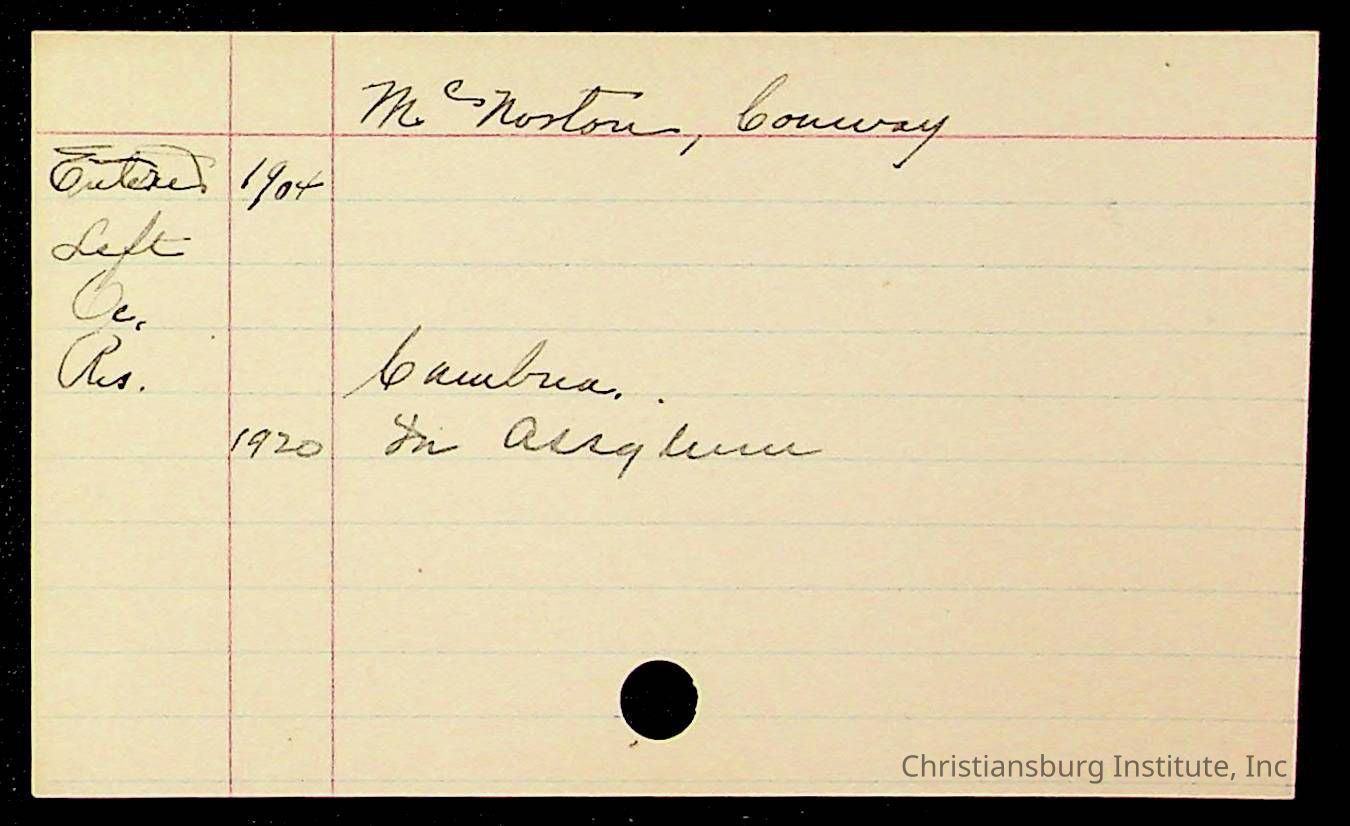 McNorton, Conway
Entered 1904
Left
Oc.
Res. Cambria.
1920 In Assylum
Christiansburg Institute, Inc